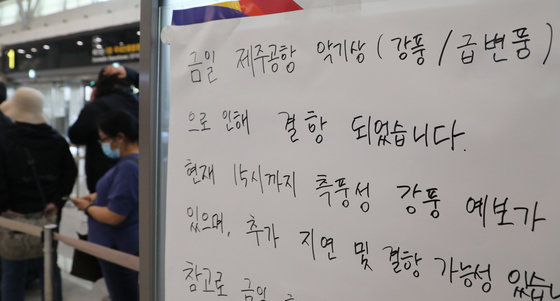 금일 제주공항 악기상 (강풍 / 급변풍)
으로 인해 결항 되었습니다.
현재 15시까지 측풍성 강풍 예보가
있으며, 추가 지연 및 결항 가능성 있습니
참고로 금일